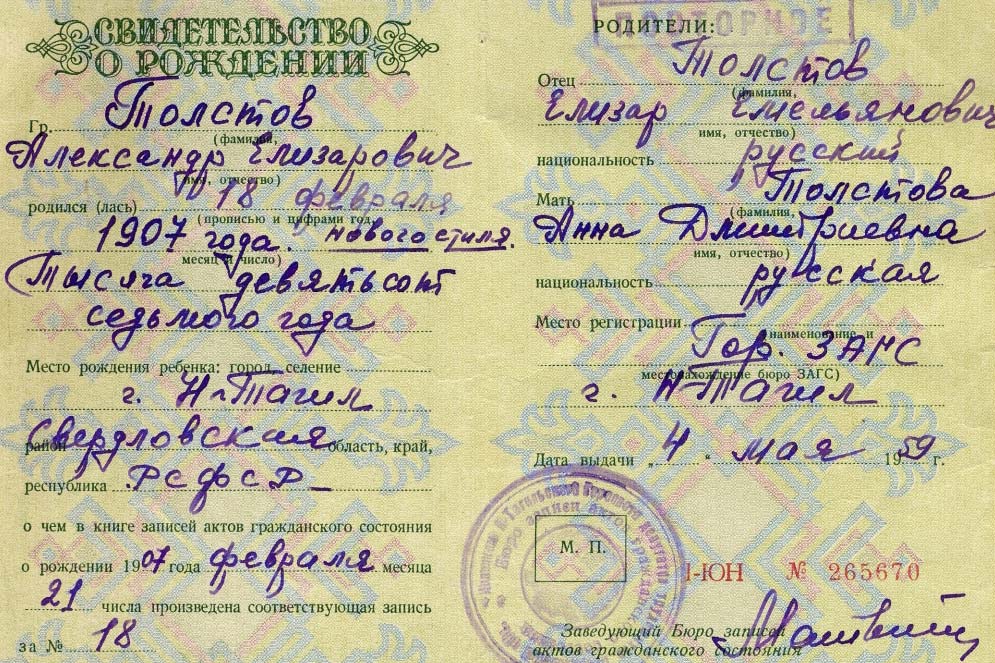 СВИДЕТЕЛЬСТВО
О РОЖДЕНИИ
Гр. Толстов
(фамилия,
Александр Елизарович
имя, отчество)
родился (лась) 18 февраля
(прописью и цифрами год,
1907 года. нового стиля.
месяц и число)
Тысяча девятьсот
седьмого года
Место рождения ребенка: город, селение
г. Н-Тагил
район Свердловская область, край,
республика РСФСР
о чем в книге записей актов гражданского состояния
о рождении 1907 года февраля месяца
21 числа произведена соответствующая запись
за № 18
ПОВТОРНОЕ
РОДИТЕЛИ:
Отец Толстов
(фамилия,
Елизар Емельянович
имя, отчество)
национальность русский
Мать Толстова
(фамилия,
Анна Дмитриевна
имя, отчество)
национальность русская
Место регистрации
наименование и
Гор. ЗАГС
местонахождение бюро ЗАГС)
г. Н-Тагил
Дата выдачи „4" мая 1959 г.
М. П.
I-ЮН № 265670
Заведующий Бюро записей
актов гражданского состояния